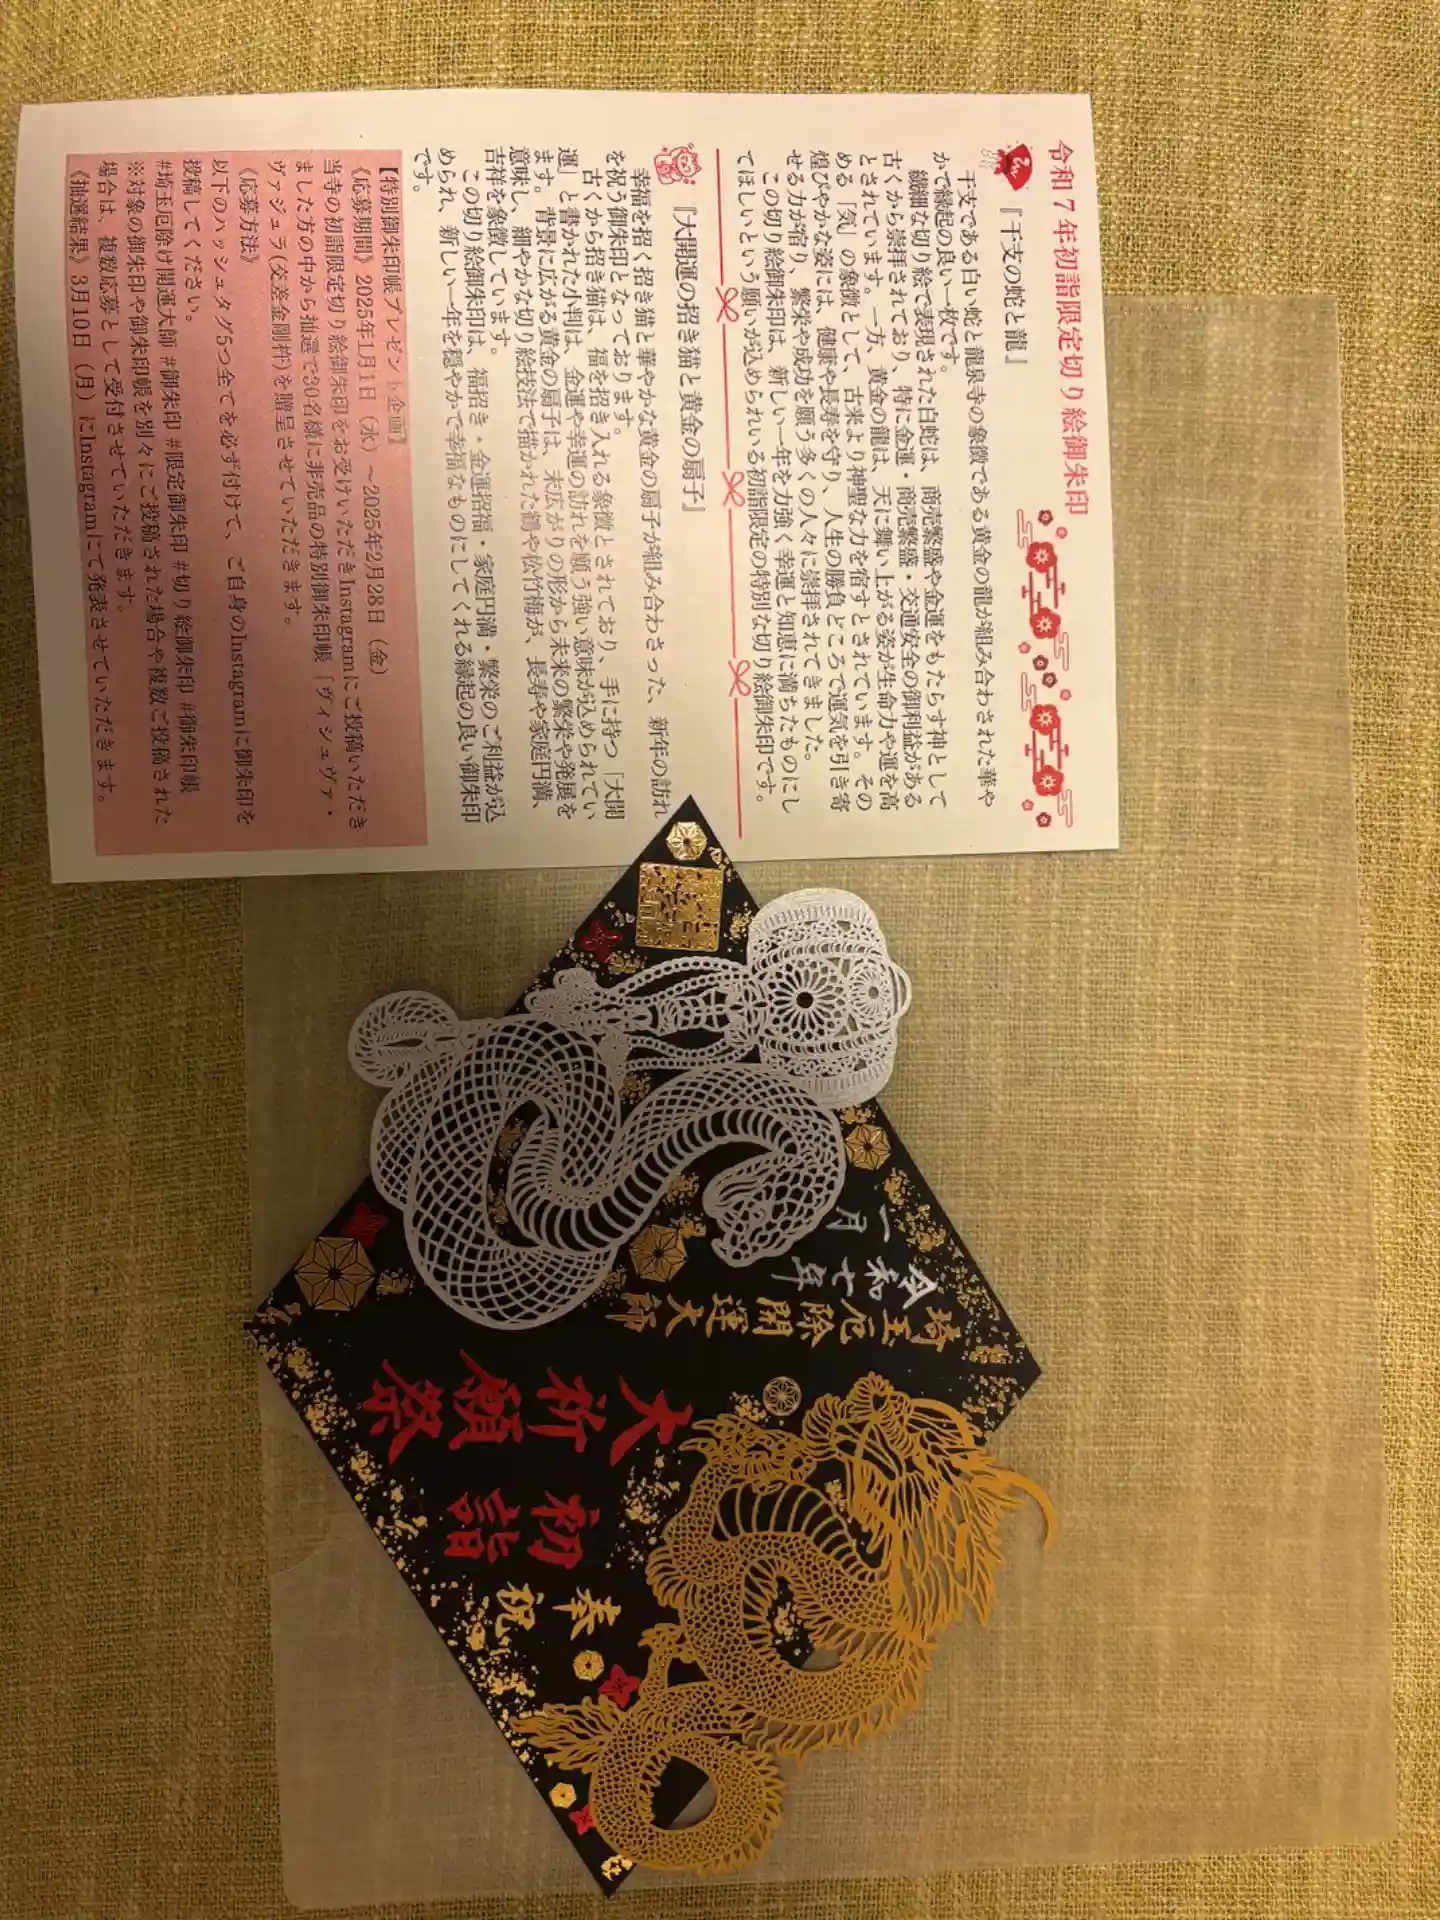 令和7年初詣限定切り絵御朱印
『干支の蛇と龍』
干支である白い蛇と龍泉寺の象徴である黄金の龍が組み合わされた華や
かで縁起の良い一枚です。
繊細な切り絵で表現された白蛇は、商売繁盛や金運をもたらす神として
古くから崇拝されており、特に金運・商売繁盛・交通安全の御利益がある
とされています。一方、黄金の龍は、天に舞い上がる姿が生命力や運を高
める「気」の象徴として、古来より神聖な力を宿すとされています。その
煌びやかな姿には、健康や長寿を守り、人生の勝負どころで運気を引き寄
せる力が宿り、繁栄や成功を願う多くの人々に崇拝されてきました。
この切り絵御朱印は、新しい一年を力強く幸運と知恵に満ちたものにし
てほしいという願いが込められいる初詣限定の特別な切り絵御朱印です。
『大開運の招き猫と黄金の扇子』
幸福を招く招き猫と華やかな黄金の扇子が組み合わさった、新年の訪れ
を祝う御朱印となっております。
古くから招き猫は、福を招き入れる象徴とされており、手に持つ「大開
運」と書かれた小判は、金運や幸運の訪れを願う強い意味が込められてい
ます。背景に広がる黄金の扇子は、末広がりの形から未来の繁栄や発展を
意味し、細やかな切り絵技法で描かれた鶴や松竹梅が、長寿や家庭円満、
吉祥を象徴しています。
この切り絵御朱印は、福招き・金運招福・家庭円満・繁栄のご利益が込
められ、新しい一年を穏やかで幸福なものにしてくれる縁起の良い御朱印
です。
【特別御朱印帳プレゼント企画】
《応募期間》2025年1月1日（水）～2025年2月28日（金）
当寺の初詣限定切り絵御朱印をお受けいただきInstagramにご投稿いただき
ました方の中から抽選で30名様に非売品の特別御朱印帳「ヴィシュヴァ・
ヴァジュラ(交差金剛杵)を贈呈させていただきます。
《応募方法》
以下のハッシュタグ5つ全てを必ず付けて、ご自身のInstagramに御朱印を
投稿してください。
#埼玉厄除け開運大師 #御朱印 #限定御朱印 #切り絵御朱印 #御朱印帳
※対象の御朱印や御朱印帳を別々にご投稿された場合や複数ご投稿された
場合は、複数応募として受付させていただきます。
《抽選結果》3月10日（月）にInstagramにて発表させていただきます。
奉祝
初詣
大祈願祭
埼玉厄除開運大師
令和七年
一月